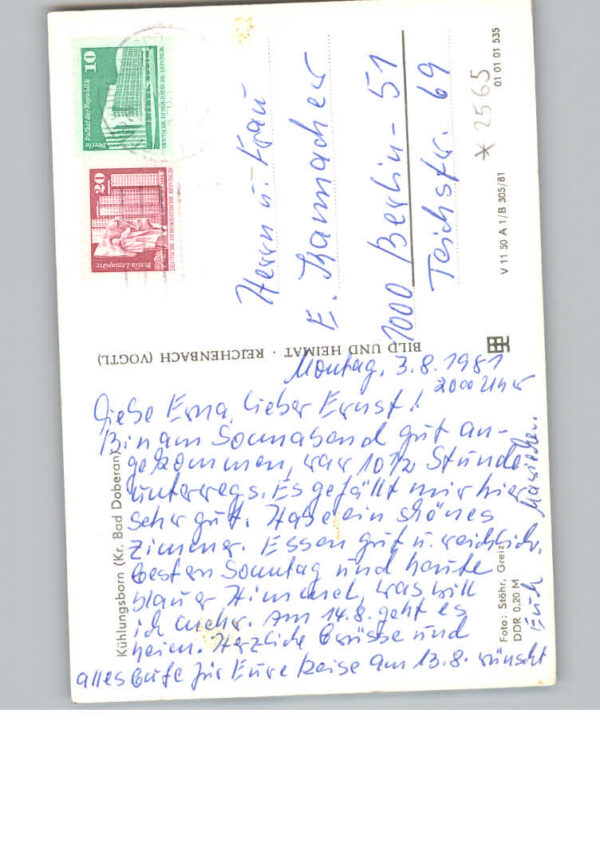 10
Palast der Republik
Berlin
DEUTSCHE DEMOKRATISCHE REPUBLIK
20
Berlin-Leninplatz
DEUTSCHE DEMOKRATISCHE REPUBLIK
Herrn u. Frau
E. Kannacher
1000 Berlin-51
Teichstr. 69
* 2565
01 01 01 535
V 11 50 A 1/B 305/81
BILD UND HEIMAT · REICHENBACH (VOGTL)
Montag, 3.8.1981
2000 Uhr
Liebe Erna, lieber Ernst!
Bin am Sonnabend gut an-
gekommen, war 10 1/2 Stunde
unterwegs. Es gefällt mir hier
sehr gut. Habe ein schönes
Zimmer. Essen gut u. reichlich.
Gestern Sonntag und heute
blauer Himmel, was will
ich mehr. Am 14.8. geht es
heim. Herzliche Grüsse und
alles Gute für Eure Reise am 13.8. wünscht
Euch
Kühlungsborn (Kr. Bad Doberan)
Foto: Stöhr, Greiz
DDR 0,20 M